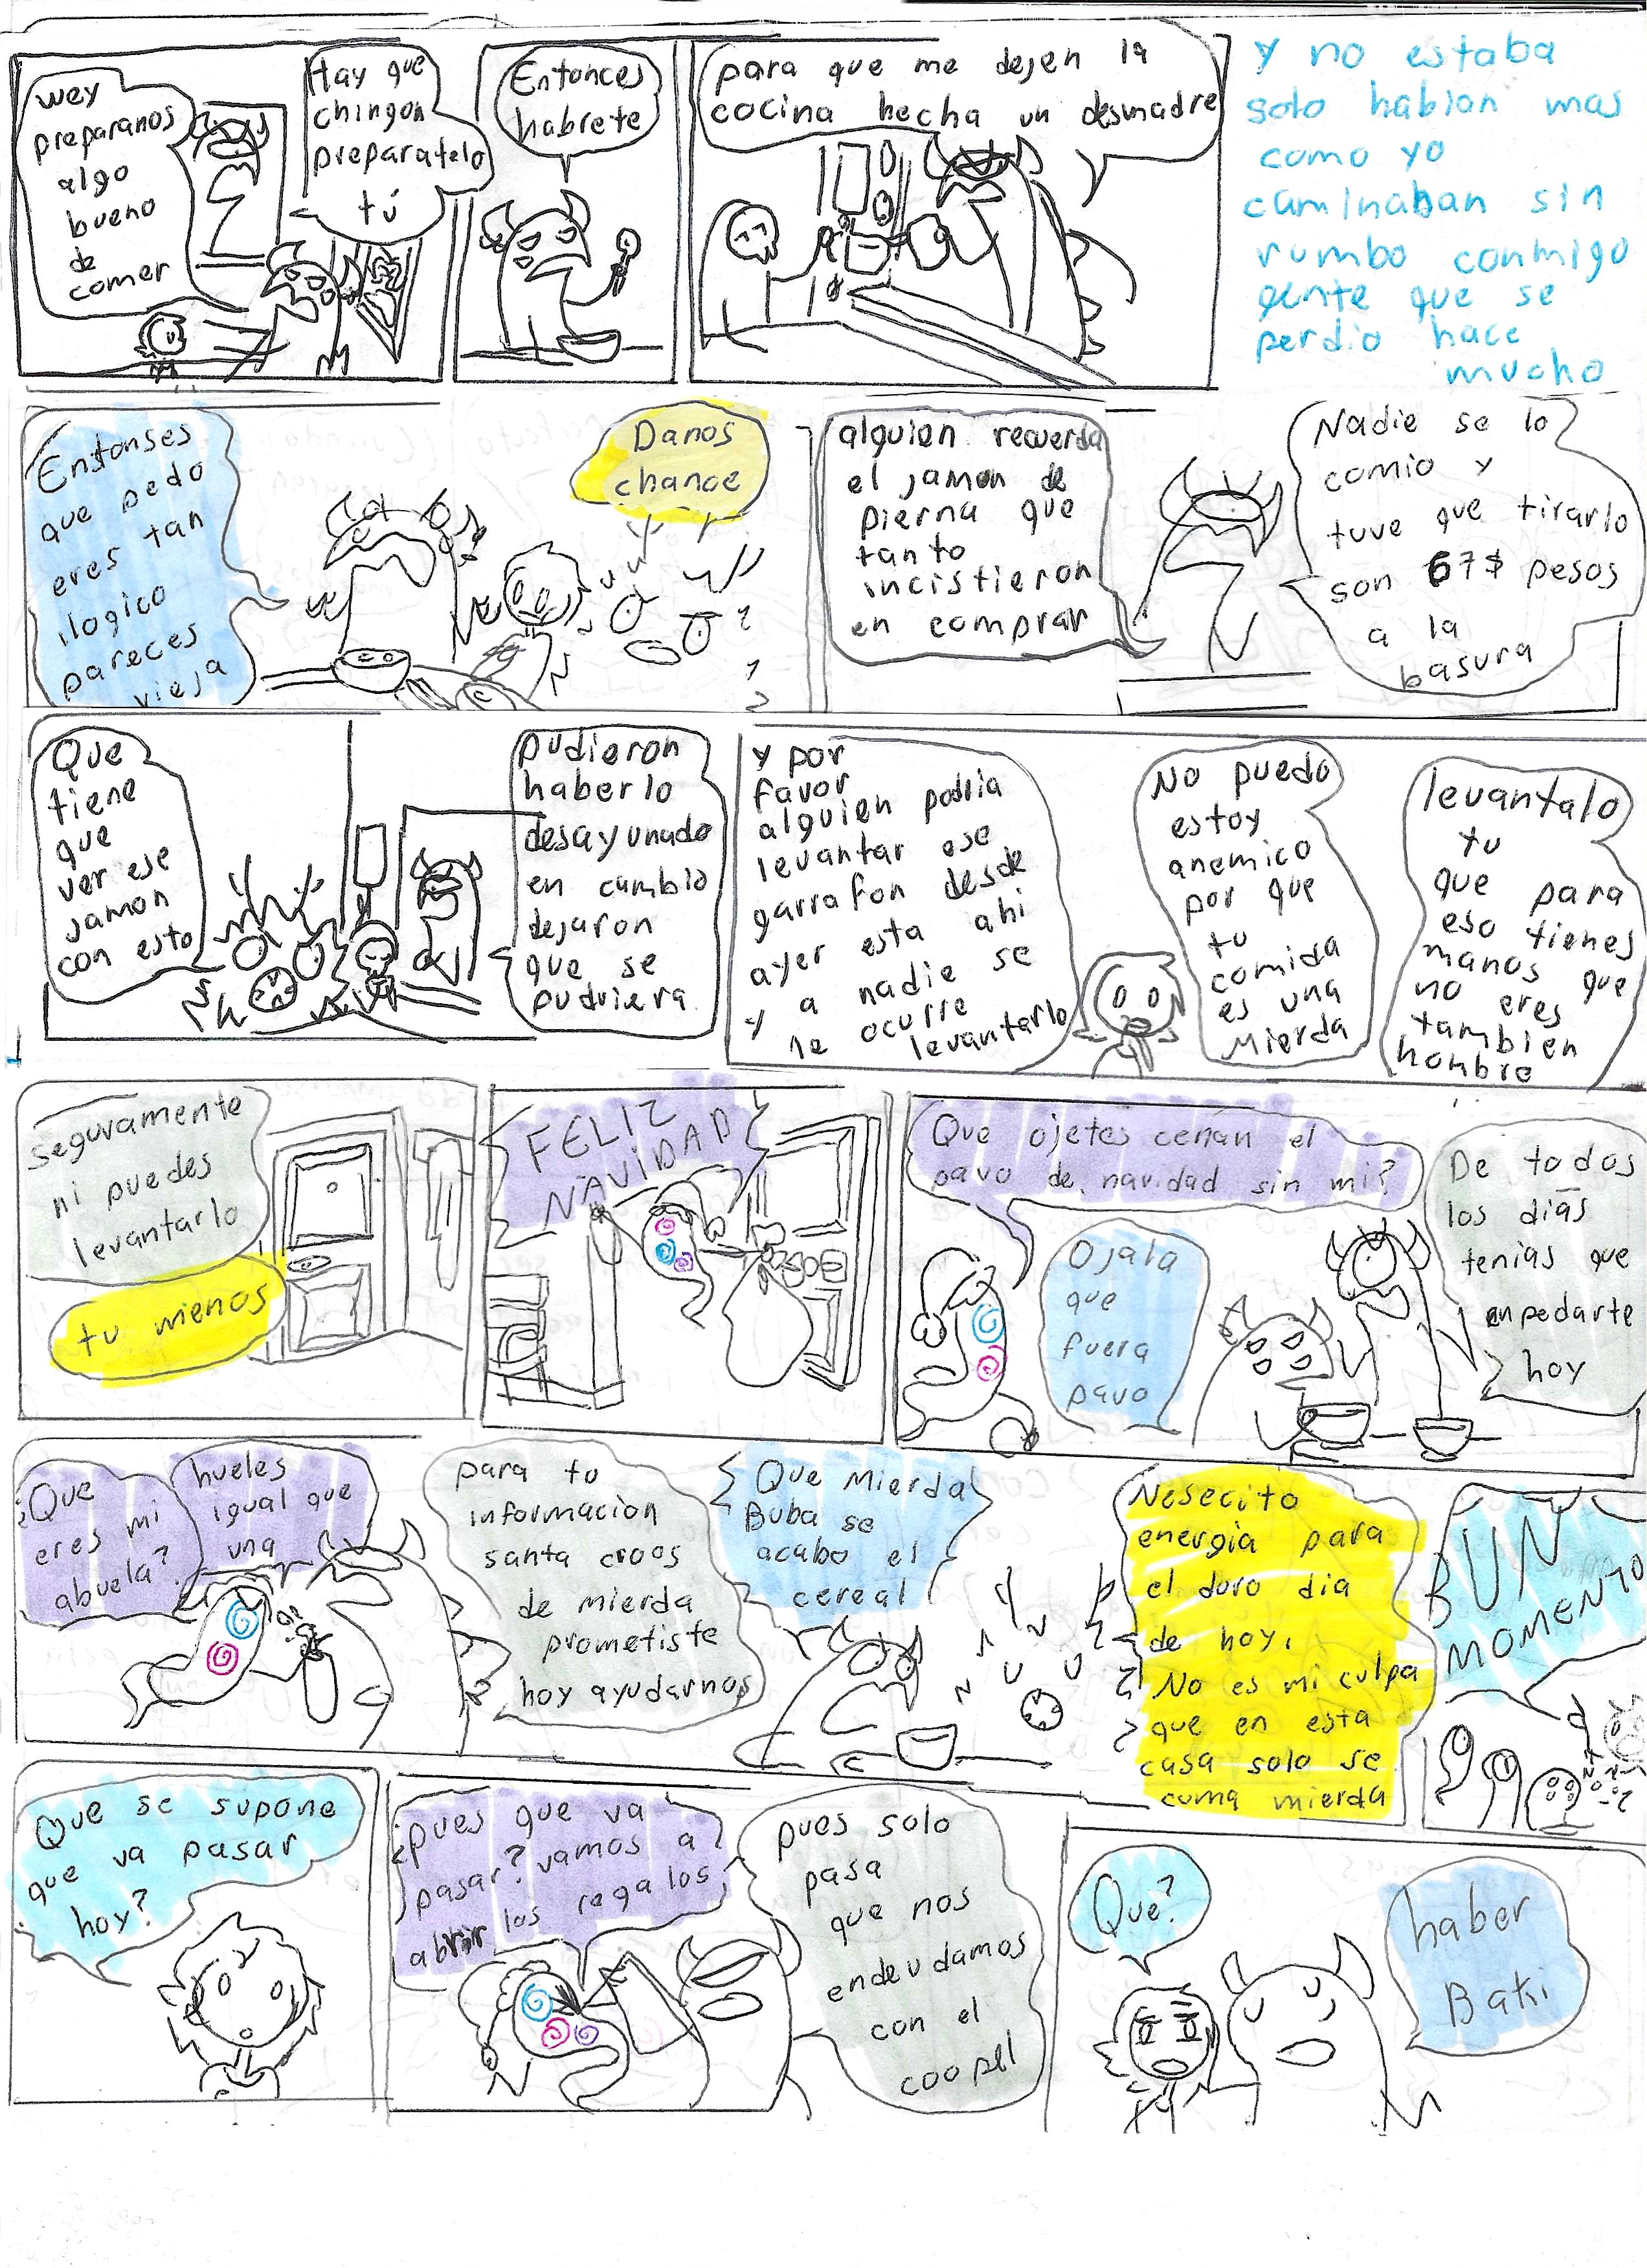 wey
preparanos
algo
bueno
de
comer
Hay que
chingon
preparatelo
tú
Entonces
habrete
para que me dejen la
cocina hecha un desmadre
Y no estaba
solo habian mas
como yo
caminaban sin
rumbo conmigo
gente que se
perdio hace
mucho
Entonses
que pedo
eres tan
ilogico
pareces
vieja
Danos
chance
alguien recuerda
el jamon de
pierna que
tanto
incistieron
en comprar
Nadie se lo
comio y
tuve que tirarlo
son 67$ pesos
a la
basura
Que
tiene
que
ver ese
jamon
con esto
pudieron
haberlo
desayunado
en cambio
dejaron
que se
pudriera
y por
favor
alguien podria
levantar ese
garrafon desde
ayer esta ahi
y a nadie se
le ocurre
levantarlo
No puedo
estoy
anemico
por que
tu
comida
es una
Mierda
levantalo
tu
que para
eso tienes
manos que
no eres
tambien
hombre
seguramente
ni puedes
levantarlo
tu menos
FELIZ
NAVIDAD
Que ojetes cenan el
pavo de navidad sin mi?
Ojala
que
fuera
pavo
De todos
los dias
tenias que
enpedarte
hoy
¿Que
eres mi
abuela?
hueles
igual que
una
para tu
informacion
santa croos
de mierda
prometiste
hoy ayudarnos
Que Mierda
Buba se
acabo el
cereal
Nesecito
energia para
el duro dia
de hoy.
No es mi culpa
que en esta
casa solo se
coma mierda
BUN
MOMENTO
Que se supone
que va pasar
hoy?
¿pues que va
pasar? vamos a
abrir los regalos
pues solo
pasa
que nos
endeudamos
con el
coopel
Que?
haber
Baki